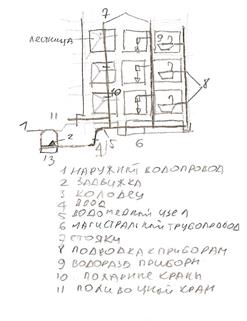 7
ЛЕСТНИЦА
9
10
8
11
1
2
13
4
5
6
1 НАРУЖНЫЙ ВОДОПРОВОД
2 ЗАДВИЖКА
3 КОЛОДЕЦ
4 ВВОД
5 ВОДОМЕРНЫЙ УЗЕЛ
6 МАГИСТРАЛЬНЫЙ ТРУБОПРОВОД
7 СТОЯКИ
8 ПОДВОДКА К ПРИБОРАМ
9 ВОДОРАЗБ ПРИБОРЫ
10 ПОЖАРНЫЕ КРАНЫ
11 ПОЛИВОЧНЫЙ КРАН